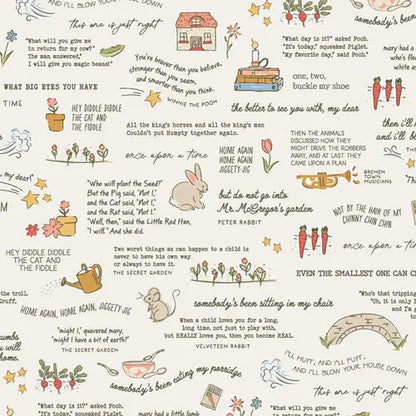 AND I'LL BLOW YOUR HOUSE DOWN
this one is just right
"What will you give me
in return for my cow?"
The man answered,
"I will give you magic beans!"
You're braver than you believe,
stronger than you seem,
and smarter than you think.
WINNIE THE POOH
somebody's been
"What day is it?" asked Pooh.
"It's today," squeaked Piglet.
"My favorite day," said Pooh."
mary had a
who's fle
white as
one, two,
buckle my shoe
WHAT BIG EYES YOU HAVE
the better to see you with, my dear
TIME
HEY DIDDLE DIDDLE
THE CAT AND
THE FIDDLE
All the king's horses and all the king's men
Couldn't put Humpty together again.
then i'll
and i'll bl
THEN THE ANIMALS
DISCUSSED HOW THEY
MIGHT DRIVE THE ROBBERS
AWAY, AND AT LAST THEY
CAME UPON A PLAN
BREMEN
TOWN
MUSICIANS
once upon a time
HOME AGAIN
HOME AGAIN
JIGGETY-JIG
my dear"
"Who will plant the Seed?"
But the Pig said, "Not I",
and the Cat said, "Not I",
and the Rat said, "Not I."
"Well, then," said the Little Red Hen,
"I will." And she did.
but do not go into
Mr. McGregor's garden
PETER RABBIT
NOT BY THE HAIR OF MY
CHINNY CHIN CHIN
once upon a
HEY DIDDLE DIDDLE
THE CAT AND
THE FIDDLE
Two worst things as can happen to a child is
never to have his own way
or always to have it.
THE SECRET GARDEN
EVEN THE SMALLEST ONE CAN
the troll.
Gruff,
HOME AGAIN, HOME AGAIN, JIGGETY-JIG
somebody's been sitting in my chair
"Who's that tripping
"Oh, it is only
"might I," quavered mary,
"might I have a bit of earth?"
THE SECRET GARDEN
When a child loves you for a long,
long time, not just to play with,
but REALLY loves you, then you become REAL.
VELVETEEN RABBIT
umbs
will
home.
somebody's been eating my porridge
I'LL HUFF, AND I'LL PUFF,
AND I'LL BLOW YOUR HOUSE DOWN
this one is just right
"What day is it?" asked Pooh.
"It's today," squeaked Piglet.
mary had a little lamb
"What will you give me
in return for my cow?"